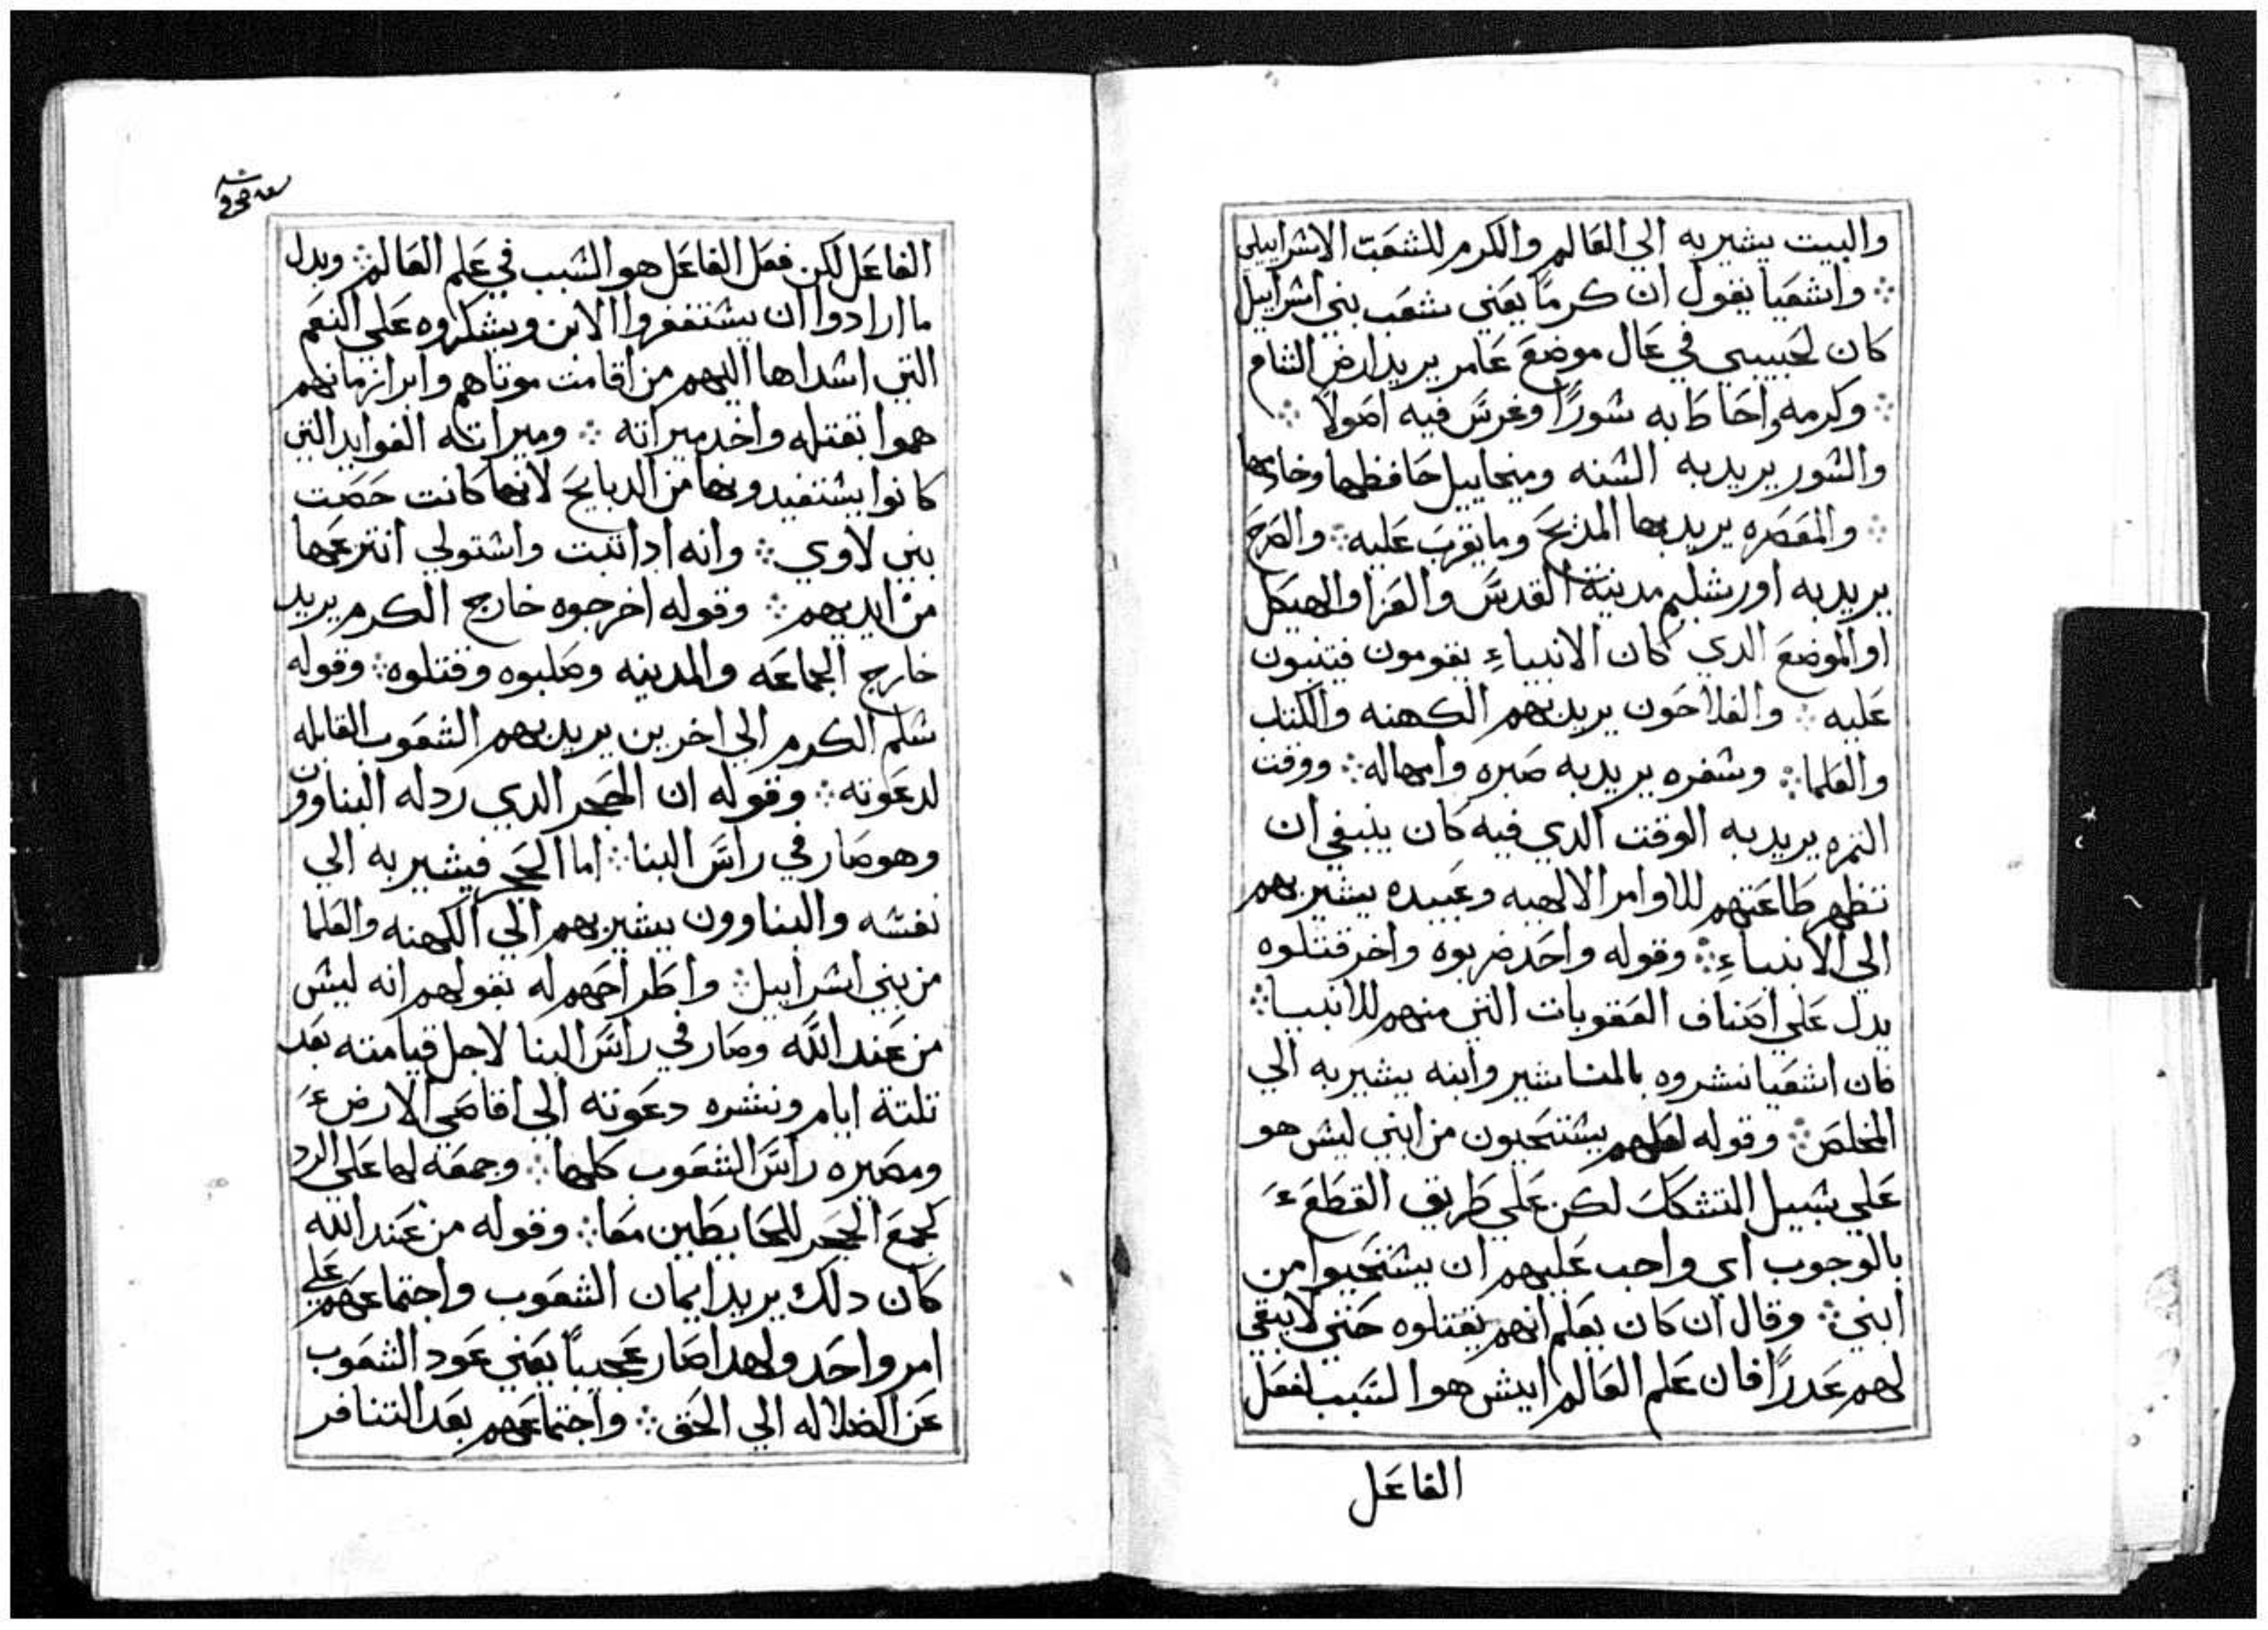 والبيت يشير به الي العالم والكرم للشعب الاسراييلي
۞ واشعيا يقول ان كرمًا يعني شعب بني اسراييل
كان لحبيبي في عال موضع عامر يريد ارض الشام
۞ وكرمه واحاط به سورًا وغرس فيه اصولًا ۞
والسور يريد به السنه وميخاييل حافظها وخادمها
۞ والمعصره يريد بها المدبح وما يقرب عليه ۞ والصرح
يريد به اورشليم مدينة القدس والعزا والهيكل
او الموضع الدي كان الانبياءِ يقومون فيتنبون
عليه ۞ والفلاحون يريد بهم الكهنه والكتاب
والعلما ۞ وسفره يريد به صبره وامهاله ۞ ووقت
التمره يريد به الوقت الدي فيه كان ينبغي ان
تظهر طاعتهم للاوامر الالهيه وعبيده يشير بهم
الي الانبياءِ ۞ وقوله واحد ضربوه واخر قتلوه
يدل علي اصناف العقوبات التي منهم للانبيا ۞
فان اشعيا نشروه بالمناشير وابنه يشير به الي
المخلص ۞ وقوله لعلهم يستحيون من ابني ليس هو
علي سبيل التشكك لكن علي طريق القطع ءَ
بالوجوب اي واجب عليهم ان يستحيوا من
ابني ۞ وقال ان كان يعلم انهم يقتلوه حتي لا يبقي
لهم عدرًا فان علم العالم ايس هو السبب لفعل
الفاعل
الفاعل لكن فعل الفاعل هو السبب في علم العالم ۞ وبدل
ما ارادوا ان يستغفروا الابن ويشكروه علي النعم
التي اسداها اليهم من اقامت موتاهم وابراز مانهم
هموا بقتله واخد ميراته ۞ وميراته الفوايد التي
كانوا يستفيدونها من الدبايح لانها كانت حصت
بني لاوي ۞ وانه ادا تبت واستولي انتزعها
من ايديهم ۞ وقوله اخرجوه خارج الكرم يريد
خارج الجماعه والمدينه وصلبوه وقتلوه ۞ وقوله
سلم الكرم الي اخرين يريد بهم الشعوب القابله
لدعوته ۞ وقوله ان الحجر الدي ردله البناوون
وهو صار في راس البنا ۞ اما الحجر فيشير به الي
نفسه والبناوون يشير بهم الي الكهنه والعلما
من بني اسراييل ۞ واطراحهم له بقولهم انه ليس
من عند الله وصار في راس البنا لاجل قيامته بعد
تلتة ايام ونشره دعوته الي اقاصي الارض ءَ
ومصيره راس الشعوب كلها ۞ وجمعه لها علي الرد
كجمع الحجر للحايطين معا ۞ وقوله من عند الله
كان دلك يريد ايمان الشعوب واجتماعهم علي
امر واحد ولهدا صار عجيبًا يعني عود الشعوب
عن الضلاله الي الحق ۞ واجتماعهم بعد التنافر